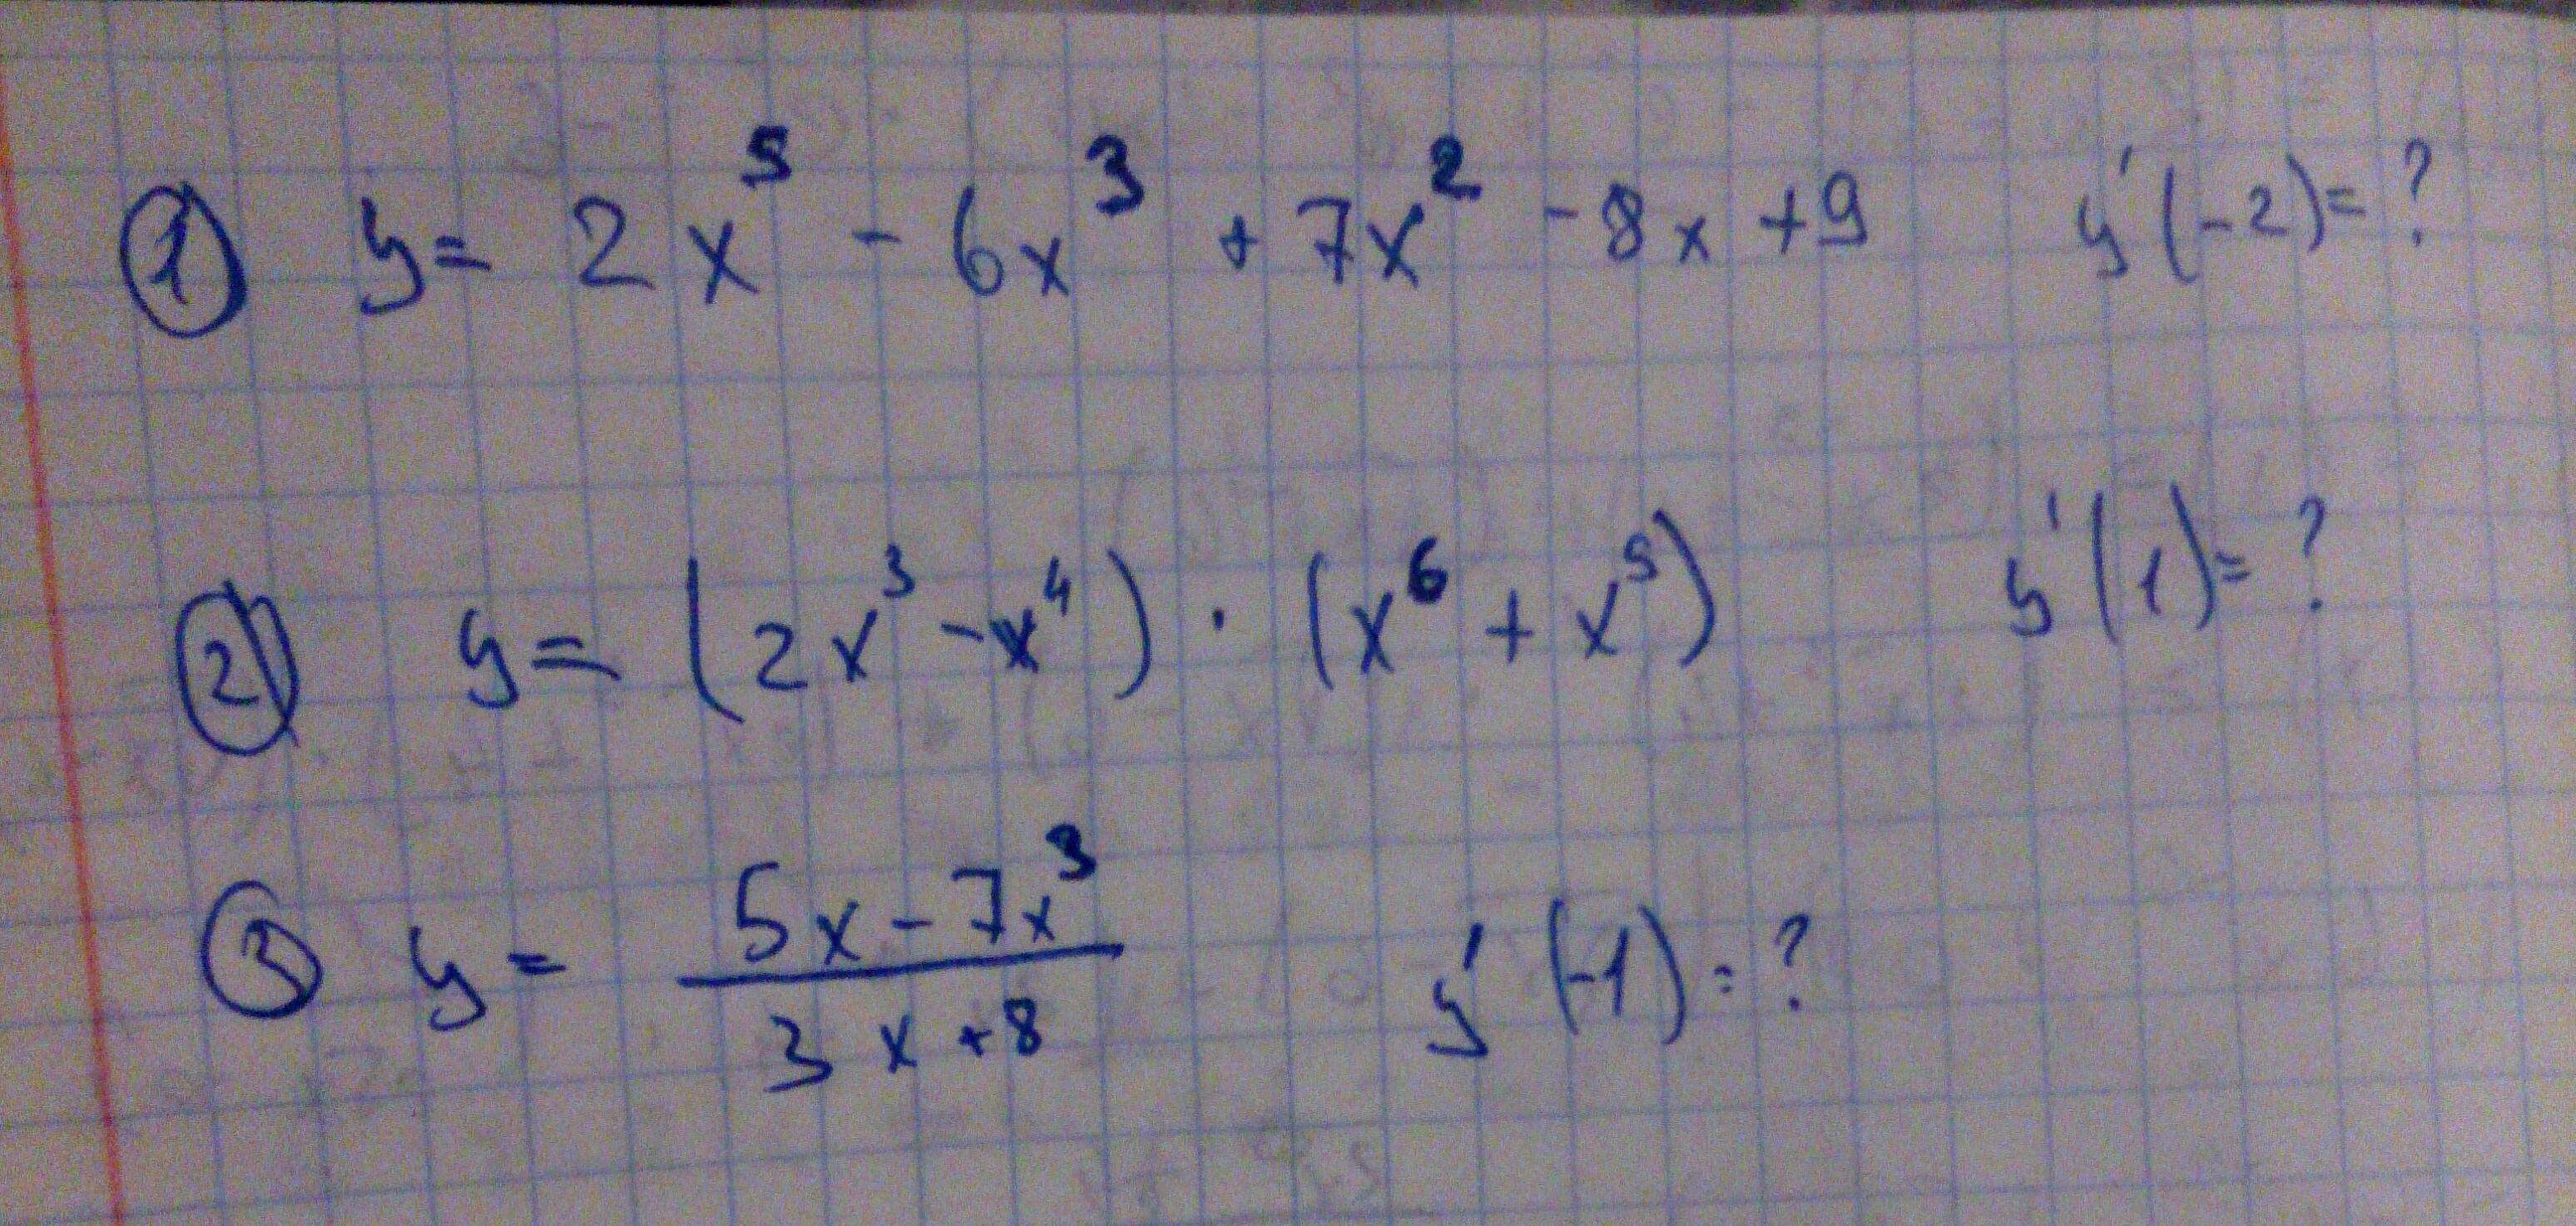 ① y = 2x⁵ - 6x³ + 7x² - 8x + 9 y'(-2) = ?
② y = (2x³ - x⁴) · (x⁶ + x⁵) y'(1) = ?
③ y = (5x - 7x³)/(3x + 8) y'(-1) = ?